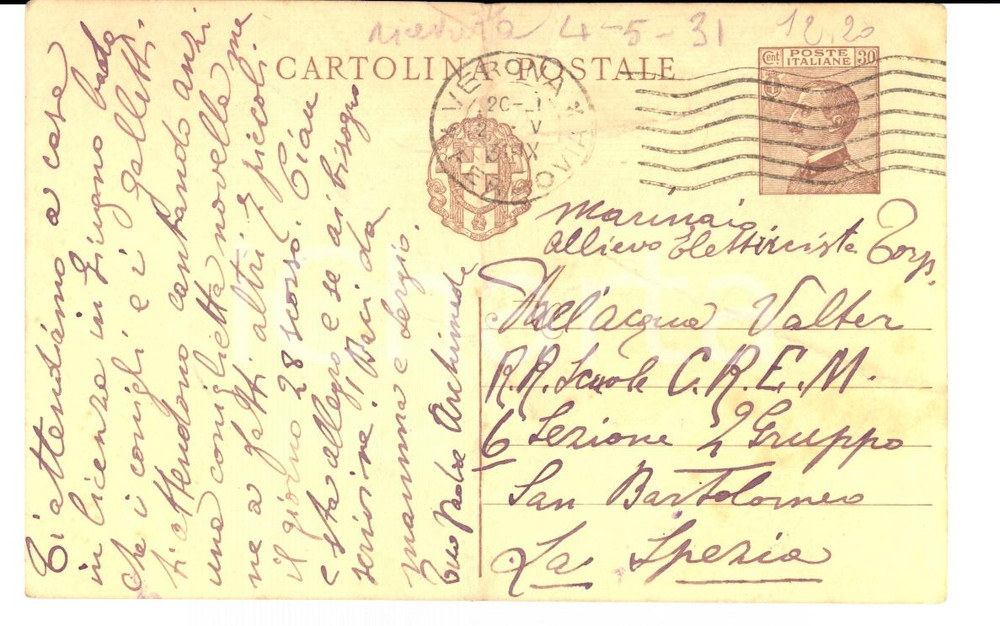 ricevuta 4-5-31 12.20
CARTOLINA POSTALE
Cent. POSTE ITALIANE 30
VERONA
FERROVIA
20-
2 V
31 IX
Marinaio
allievo Elettricista Torp.
Dell'acqua Valter
R.R. Scuole C.R.E.M.
6 Sezione 2 Gruppo
San Bartolomeo
La Spezia
Ti attendiamo a casa
in licenza in Giugno bada
che i conigli e i galletti
ti attendono cantando anzi
una coniglietta novella me
ne a fatti altri 7 piccoli
il giorno 28 scorso. Ciau
e sta allegro e se ai bisogno
scrivime. Baci da
mamma e Sergio.
tuo Padre Archimede